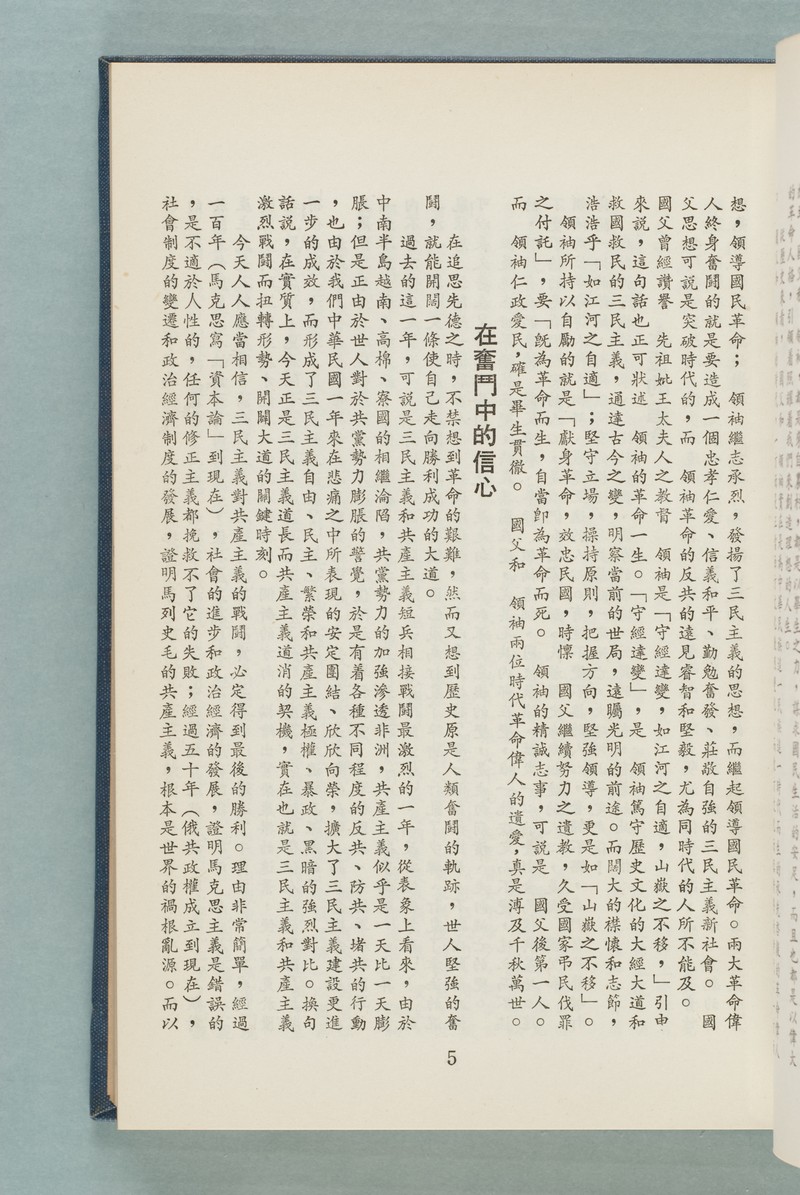 想，領導國民革命；　領袖繼志承烈，發揚了三民主義的思想，而繼起領導國民革命。兩大革命偉
人終身奮鬪的就是要造成一個忠孝仁愛、信義和平、勤勉奮發、莊敬自強的三民主義新社會。　國
父思想可說是突破時代的，而　領袖革命的反共的遠見睿智和堅毅，尤為同時代的人所不能及。
國父曾經讚譽　先祖妣王太夫人之教督　領袖是「守經達變，如江河之自適，山嶽之不移，」引申
來說，這句話也正可狀述　領袖的革命一生。「守經達變」，是　領袖篤守歷史文化的大經大道和
救國救民的三民主義，通達古今之變，明察當前的世局，遠矚光明的前途。而闊大的襟懷和志節，
浩浩乎「如江河之自適」；堅守立場，操持原則，把握方向，堅強領導，更是如「山嶽之不移」。
領袖所持以自勵的就是「獻身革命，效忠民國，時懷　國父繼續努力之遺教，久受國家弔民伐罪
之付託」，要「旣為革命而生，自當卽為革命而死。　領袖的精誠志事，可說是　國父後第一人。
而　領袖仁政愛民，確是畢生貫徹。　國父和　領袖兩位時代革命偉人的遺愛，真是溥及千秋萬世。
在奮鬥中的信心
在追思先德之時，不禁想到革命的艱難，然而又想到歷史原是人類奮鬪的軌跡，世人堅強的奮
鬪，就能開闢一條使自己走向勝利成功的大道。
過去的這一年，可說是三民主義和共產主義短兵相接戰鬪最激烈的一年，從表象上看來，由於
中南半島越南、高棉、寮國的相繼淪陷，共黨勢力的加強滲透非洲，共產主義似乎是一天比一天膨
脹；但是正由於世人對於共黨勢力膨脹的警覺，於是有着各種不同程度的反共、防共、堵共的行動
，也由於我們中華民國一年來在悲痛之中所表現的安定團結、欣欣向榮，擴大了三民主義建設更進
一步的成效，而形成了三民主義自由、民主、繁榮和共產主義極權、暴政、黑暗的強烈對比。換句
話說，在實質上，今天正是三民主義道長而共產主義道消的契機，實在也就是三民主義和共產主義
激烈戰鬪而扭轉形勢、開闢大道的關鍵時刻。
今天人人應當相信，三民主義對共產主義的戰鬪，必定得到最後的勝利。理由非常簡單，經過
一百年（馬克思寫「資本論」到現在），社會的進步和政治經濟的發展，證明馬克思主義是錯誤的
，是不適於人性的，任何的修正主義都挽救不了它的失敗；經過五十年（俄共政權成立到現在），
社會制度的變遷和政治經濟制度的發展，證明馬列史毛的共產主義，根本是世界的禍根亂源。而以
5